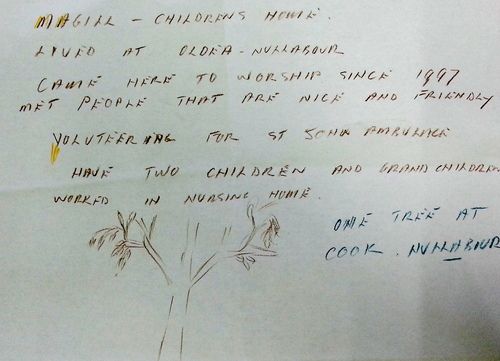 MAGILL - CHILDRENS HOME.
LIVED AT OLDEA - NULLABOUR
CAME HERE TO WORSHIP SINCE 1997
MET PEOPLE THAT ARE NICE AND FRIENDLY
VOLUTEERING FOR ST JOHN AMBULANCE
HAVE TWO CHILDREN AND GRAND CHILDREN
WORKED IN NURSING HOME.
ONE TREE AT
COOK. NULLABOUR